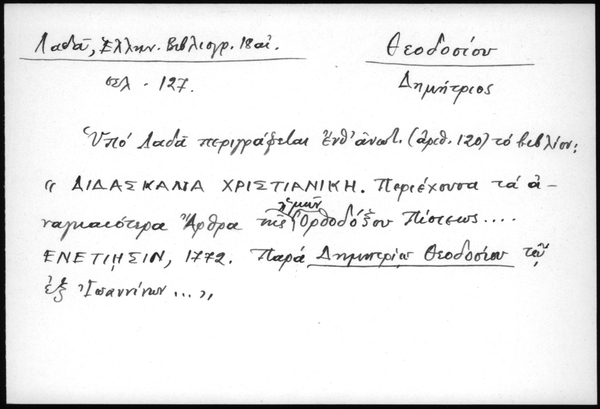 Λαδᾶ, Ἑλλην. Βιβλιογρ. 18 αἰ.
σελ. 127.
Θεοδοσίου
Δημήτριος
Ὑπό Λαδᾶ περιγράφεται ἔνθ' ἀνωτ. (ἀριθ. 120) τό βιβλίον:
" ΔΙΔΑΣΚΑΛΙΑ ΧΡΙΣΤΙΑΝΙΚΗ. Περιέχουσα τά ἀ-
ναγκαιότερα Ἄρθρα τῆς ἡμῶν Ὀρθοδόξου Πίστεως....
ΕΝΕΤΙῌΣΙΝ, 1772. Παρά Δημητρίῳ Θεοδοσίου τῷ
ἐξ Ἰωαννίνων ... "